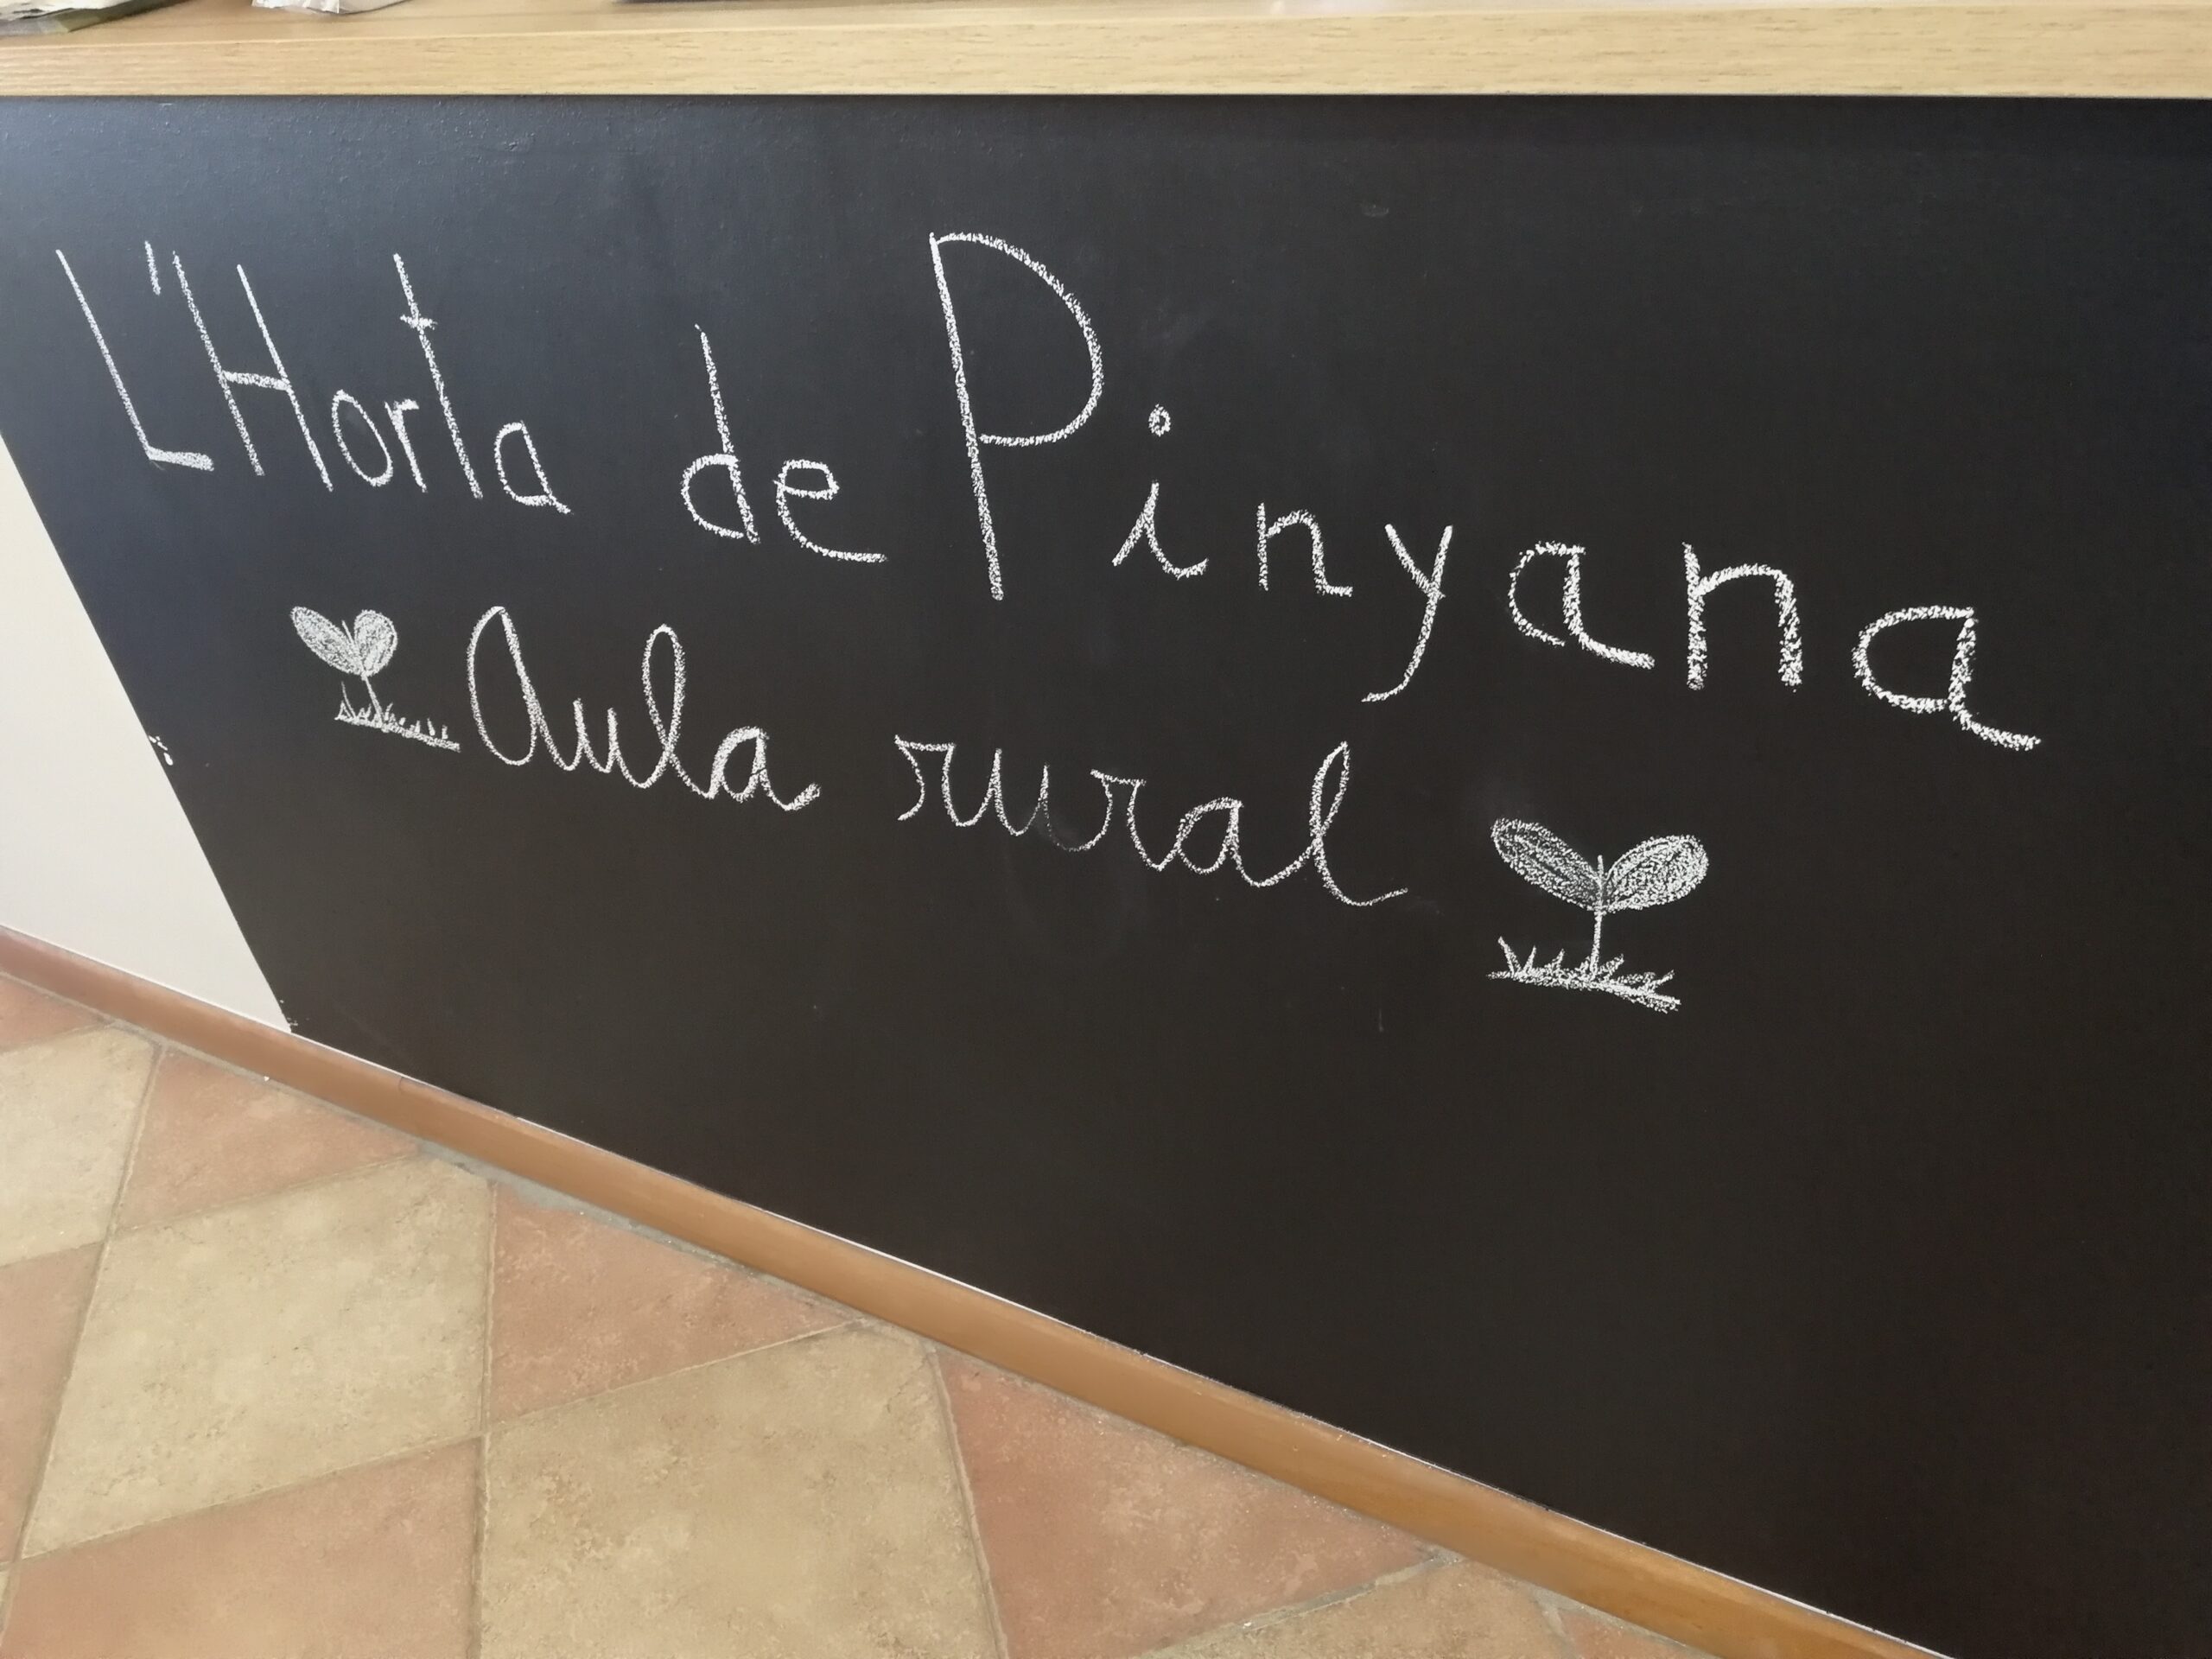 L'Horta de Pinyana
Aula rural